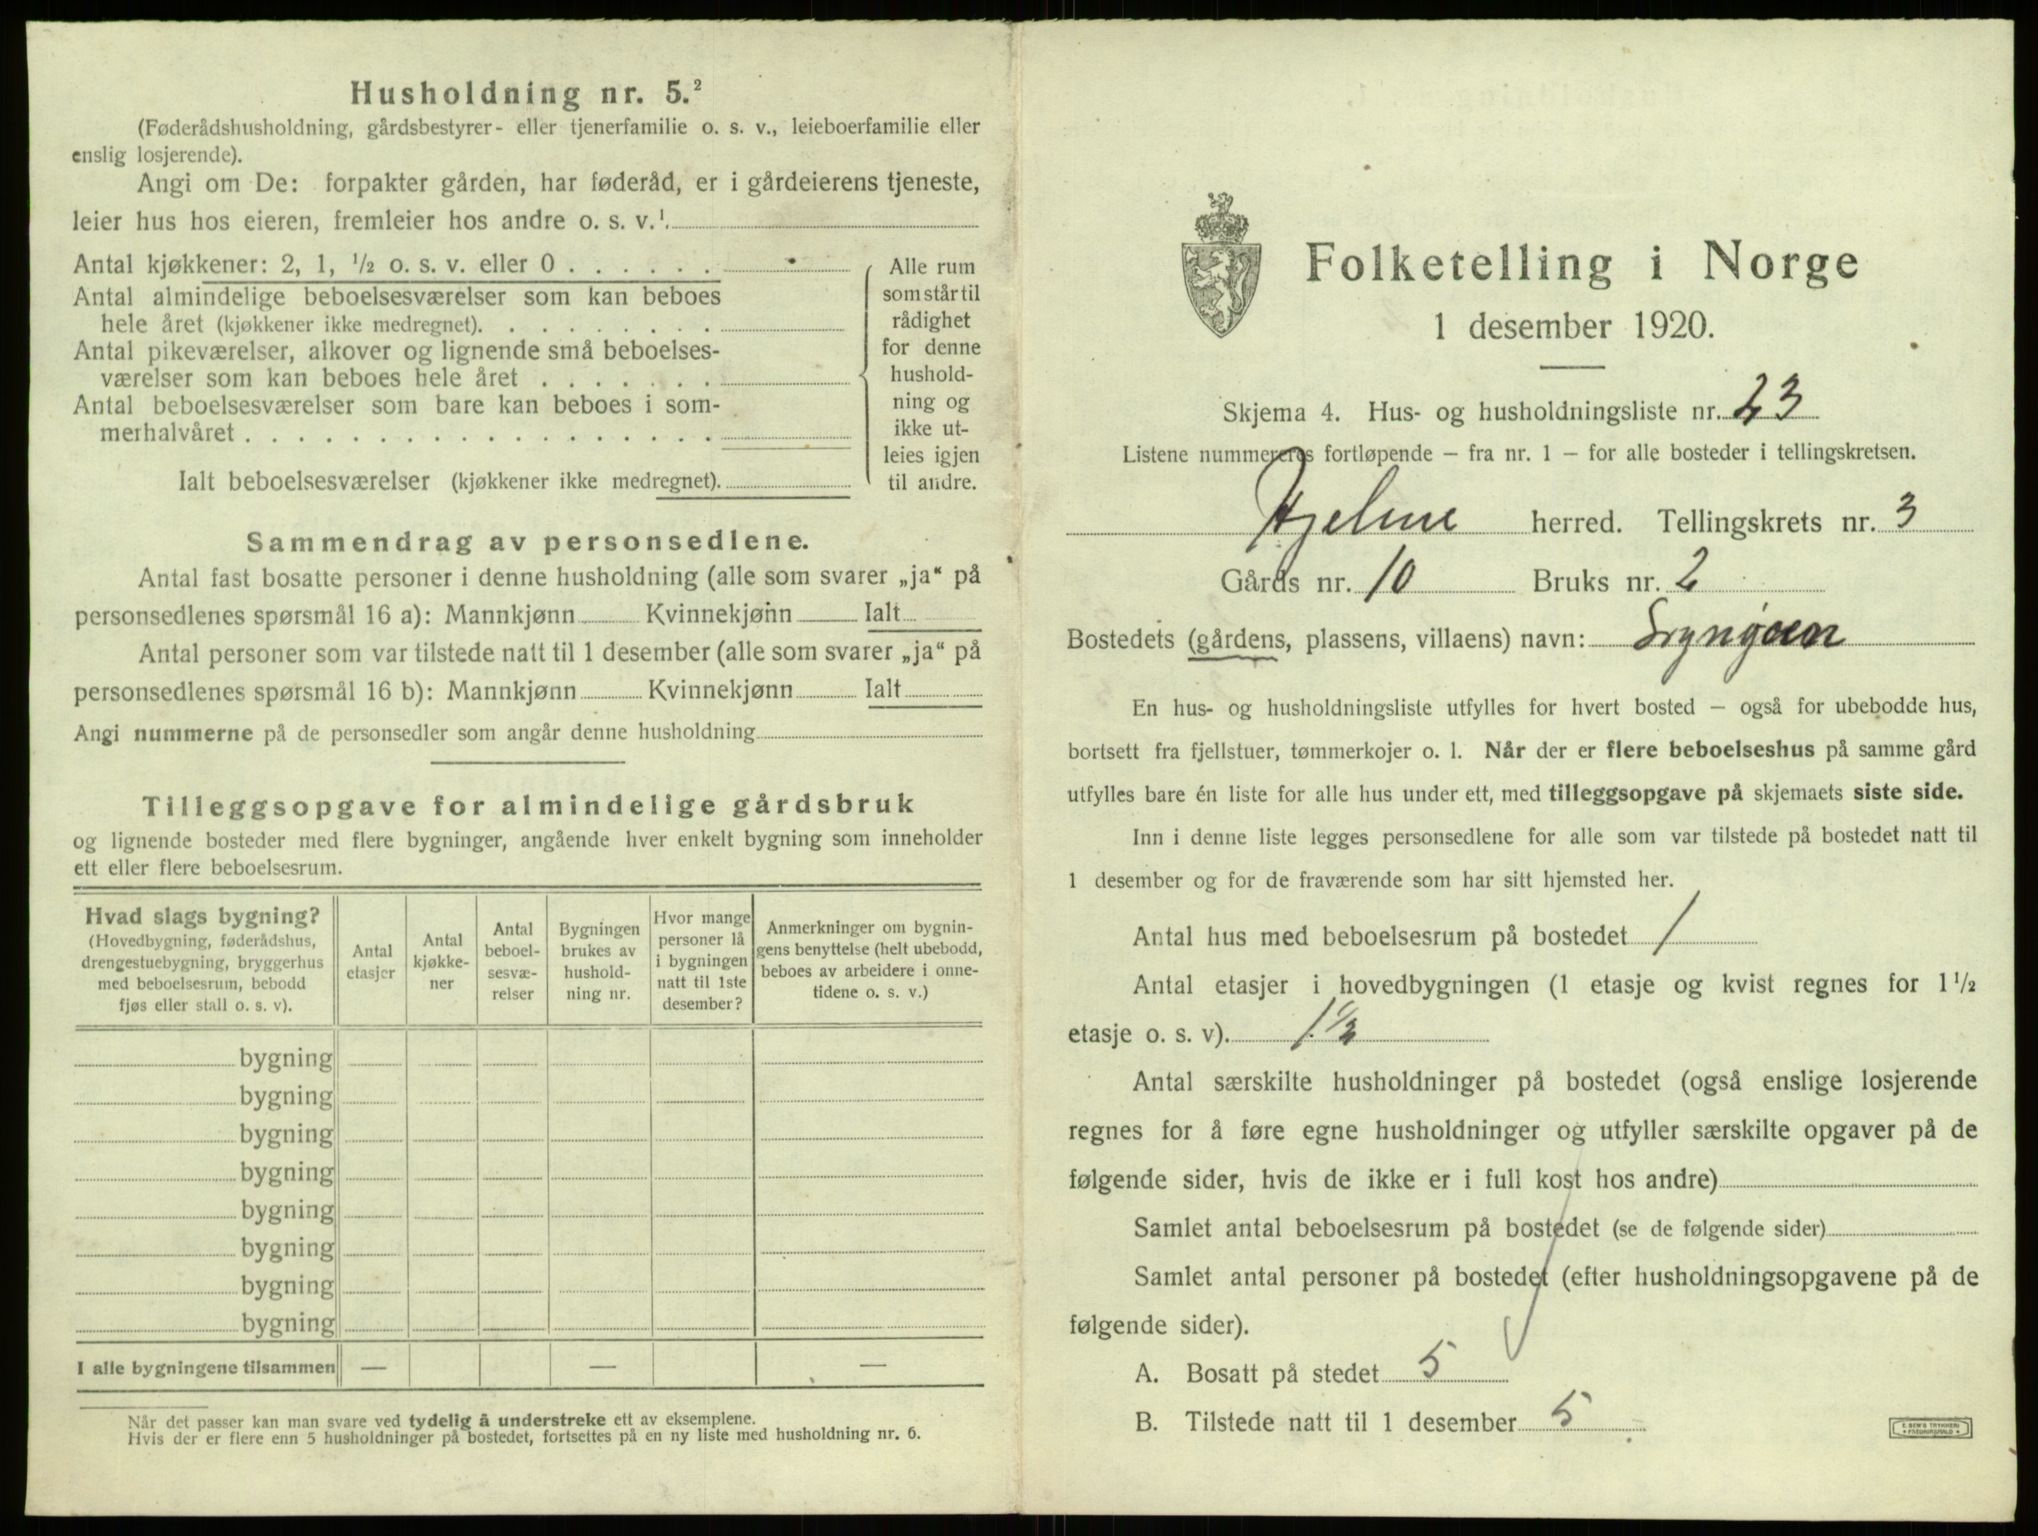 Husholdning nr. 5.²
(Føderådshusholdning, gårdsbestyrer- eller tjenerfamilie o. s. v., leieboerfamilie eller
enslig losjerende).
Angi om De: forpakter gården, har føderåd, er i gårdeierens tjeneste,
leier hus hos eieren, fremleier hos andre o. s. v.¹.
Antal kjøkkener: 2, 1, ½ o. s. v. eller 0 . . . . . .
Antal almindelige beboelsesværelser som kan beboes
hele året (kjøkkener ikke medregnet). . . . . . . . .
Antal pikeværelser, alkover og lignende små beboelses-
værelser som kan beboes hele året . . . . . . .
Antal beboelsesværelser som bare kan beboes i som-
merhalvåret . . . . . . . . . . . . . . . . . .
Ialt beboelsesværelser (kjøkkener ikke medregnet).
Alle rum
som står til
rådighet
for denne
hushold-
ning og
ikke ut-
leies igjen
til andre.
Sammendrag av personsedlene.
Antal fast bosatte personer i denne husholdning (alle som svarer „ja“ på
personsedlenes spørsmål 16 a): Mannkjønn Kvinnekjønn Ialt
Antal personer som var tilstede natt til 1 desember (alle som svarer „ja“ på
personsedlenes spørsmål 16 b): Mannkjønn Kvinnekjønn Ialt
Angi nummerne på de personsedler som angår denne husholdning
Tilleggsopgave for almindelige gårdsbruk
og lignende bosteder med flere bygninger, angående hver enkelt bygning som inneholder
ett eller flere beboelsesrum.
Hvad slags bygning?
(Hovedbygning, føderådshus,
drengestuebygning, bryggerhus
med beboelsesrum, bebodd
fjøs eller stall o. s. v).
Antal
etasjer
Antal
kjøkke-
ner
Antal
beboel-
sesvæ-
relser
Bygningen
brukes av
hushold-
ning nr.
Hvor mange
personer lå
i bygningen
natt til 1ste
desember?
Anmerkninger om bygnin-
gens benyttelse (helt ubebodd,
beboes av arbeidere i onne-
tidene o. s. v.)
bygning
bygning
bygning
bygning
bygning
bygning
bygning
bygning
I alle bygningene tilsammen — — —
Når det passer kan man svare ved tydelig å understreke ett av eksemplene.
Hvis der er flere enn 5 husholdninger på bostedet, fortsettes på en ny liste med husholdning nr. 6.
Folketelling i Norge
1 desember 1920.
Skjema 4. Hus- og husholdningsliste nr. 23
Listene nummereres fortløpende – fra nr. 1 – for alle bosteder i tellingskretsen.
Hjelme herred. Tellingskrets nr. 3
Gårds nr. 10 Bruks nr. 2
Bostedets (gårdens, plassens, villaens) navn:
En hus- og husholdningsliste utfylles for hvert bosted – også for ubebodde hus,
bortsett fra fjellstuer, tømmerkojer o. l. Når der er flere beboelseshus på samme gård
utfylles bare én liste for alle hus under ett, med tilleggsopgave på skjemaets siste side.
Inn i denne liste legges personsedlene for alle som var tilstede på bostedet natt til
1 desember og for de fraværende som har sitt hjemsted her.
Antal hus med beboelsesrum på bostedet 1
Antal etasjer i hovedbygningen (1 etasje og kvist regnes for 1½
etasje o. s. v). 1½
Antal særskilte husholdninger på bostedet (også enslige losjerende
regnes for å føre egne husholdninger og utfyller særskilte opgaver på de
følgende sider, hvis de ikke er i full kost hos andre)
Samlet antal beboelsesrum på bostedet (se de følgende sider)
Samlet antal personer på bostedet (efter husholdningsopgavene på de
følgende sider).
A. Bosatt på stedet 5
B. Tilstede natt til 1 desember 5